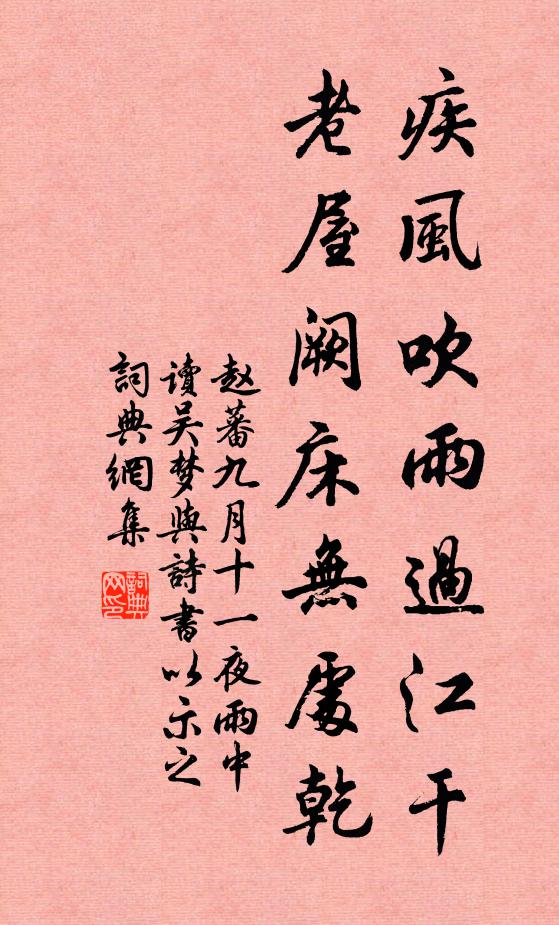 疾風吹雨過江干
老屋闕床無處乾
赵蕃九月十一夜雨中
讀吴梦與詩書以示之
詞典網集
詞典網印